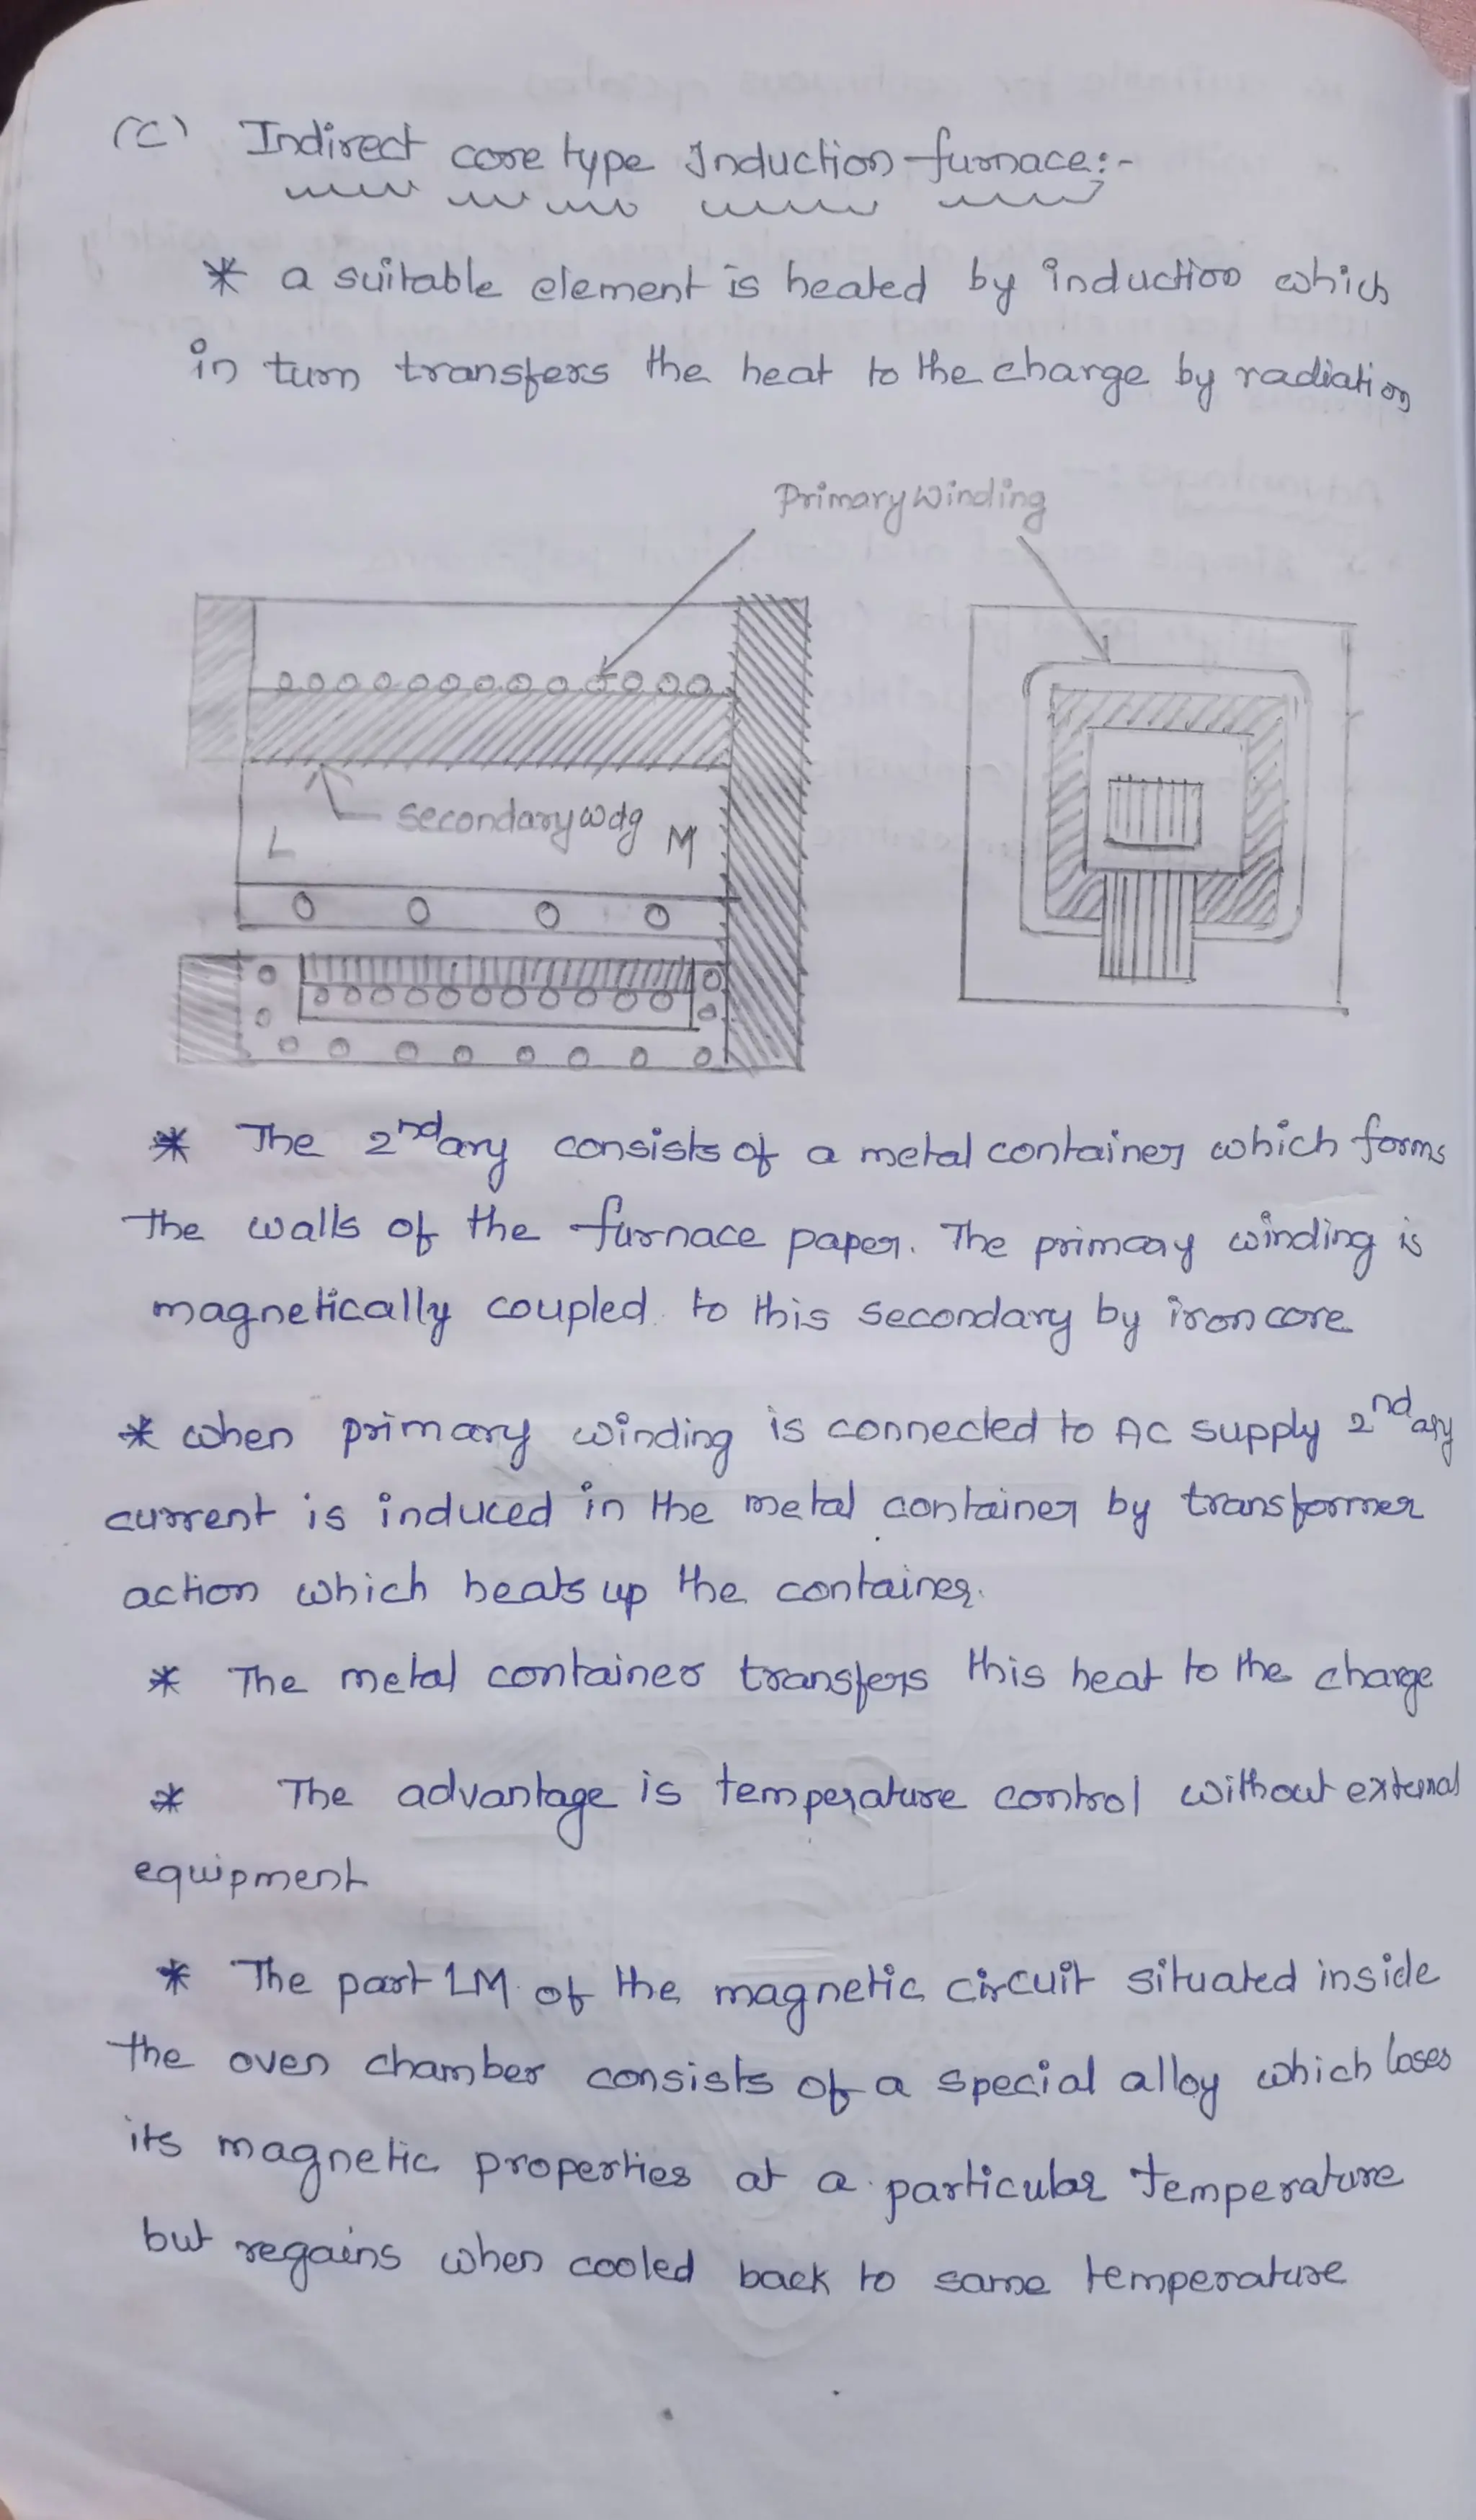 (C) Indirect core type Induction furnace:-
* a suitable element is heated by induction which
in turn transfers the heat to the charge by radiation
Primary winding
Secondary wdg
L
M
* The 2ndary consists of a metal container which forms
the walls of the furnace paper. The primary winding is
magnetically coupled to this secondary by iron core
* when primary winding is connected to AC supply 2ndary
current is induced in the metal container by transformer
action which heats up the container.
* The metal container transfers this heat to the charge
* The advantage is temperature control without external
equipment
* The part LM of the magnetic circuit situated inside
the oven chamber consists of a special alloy which loses
its magnetic properties at a particular temperature
but regains when cooled back to same temperature